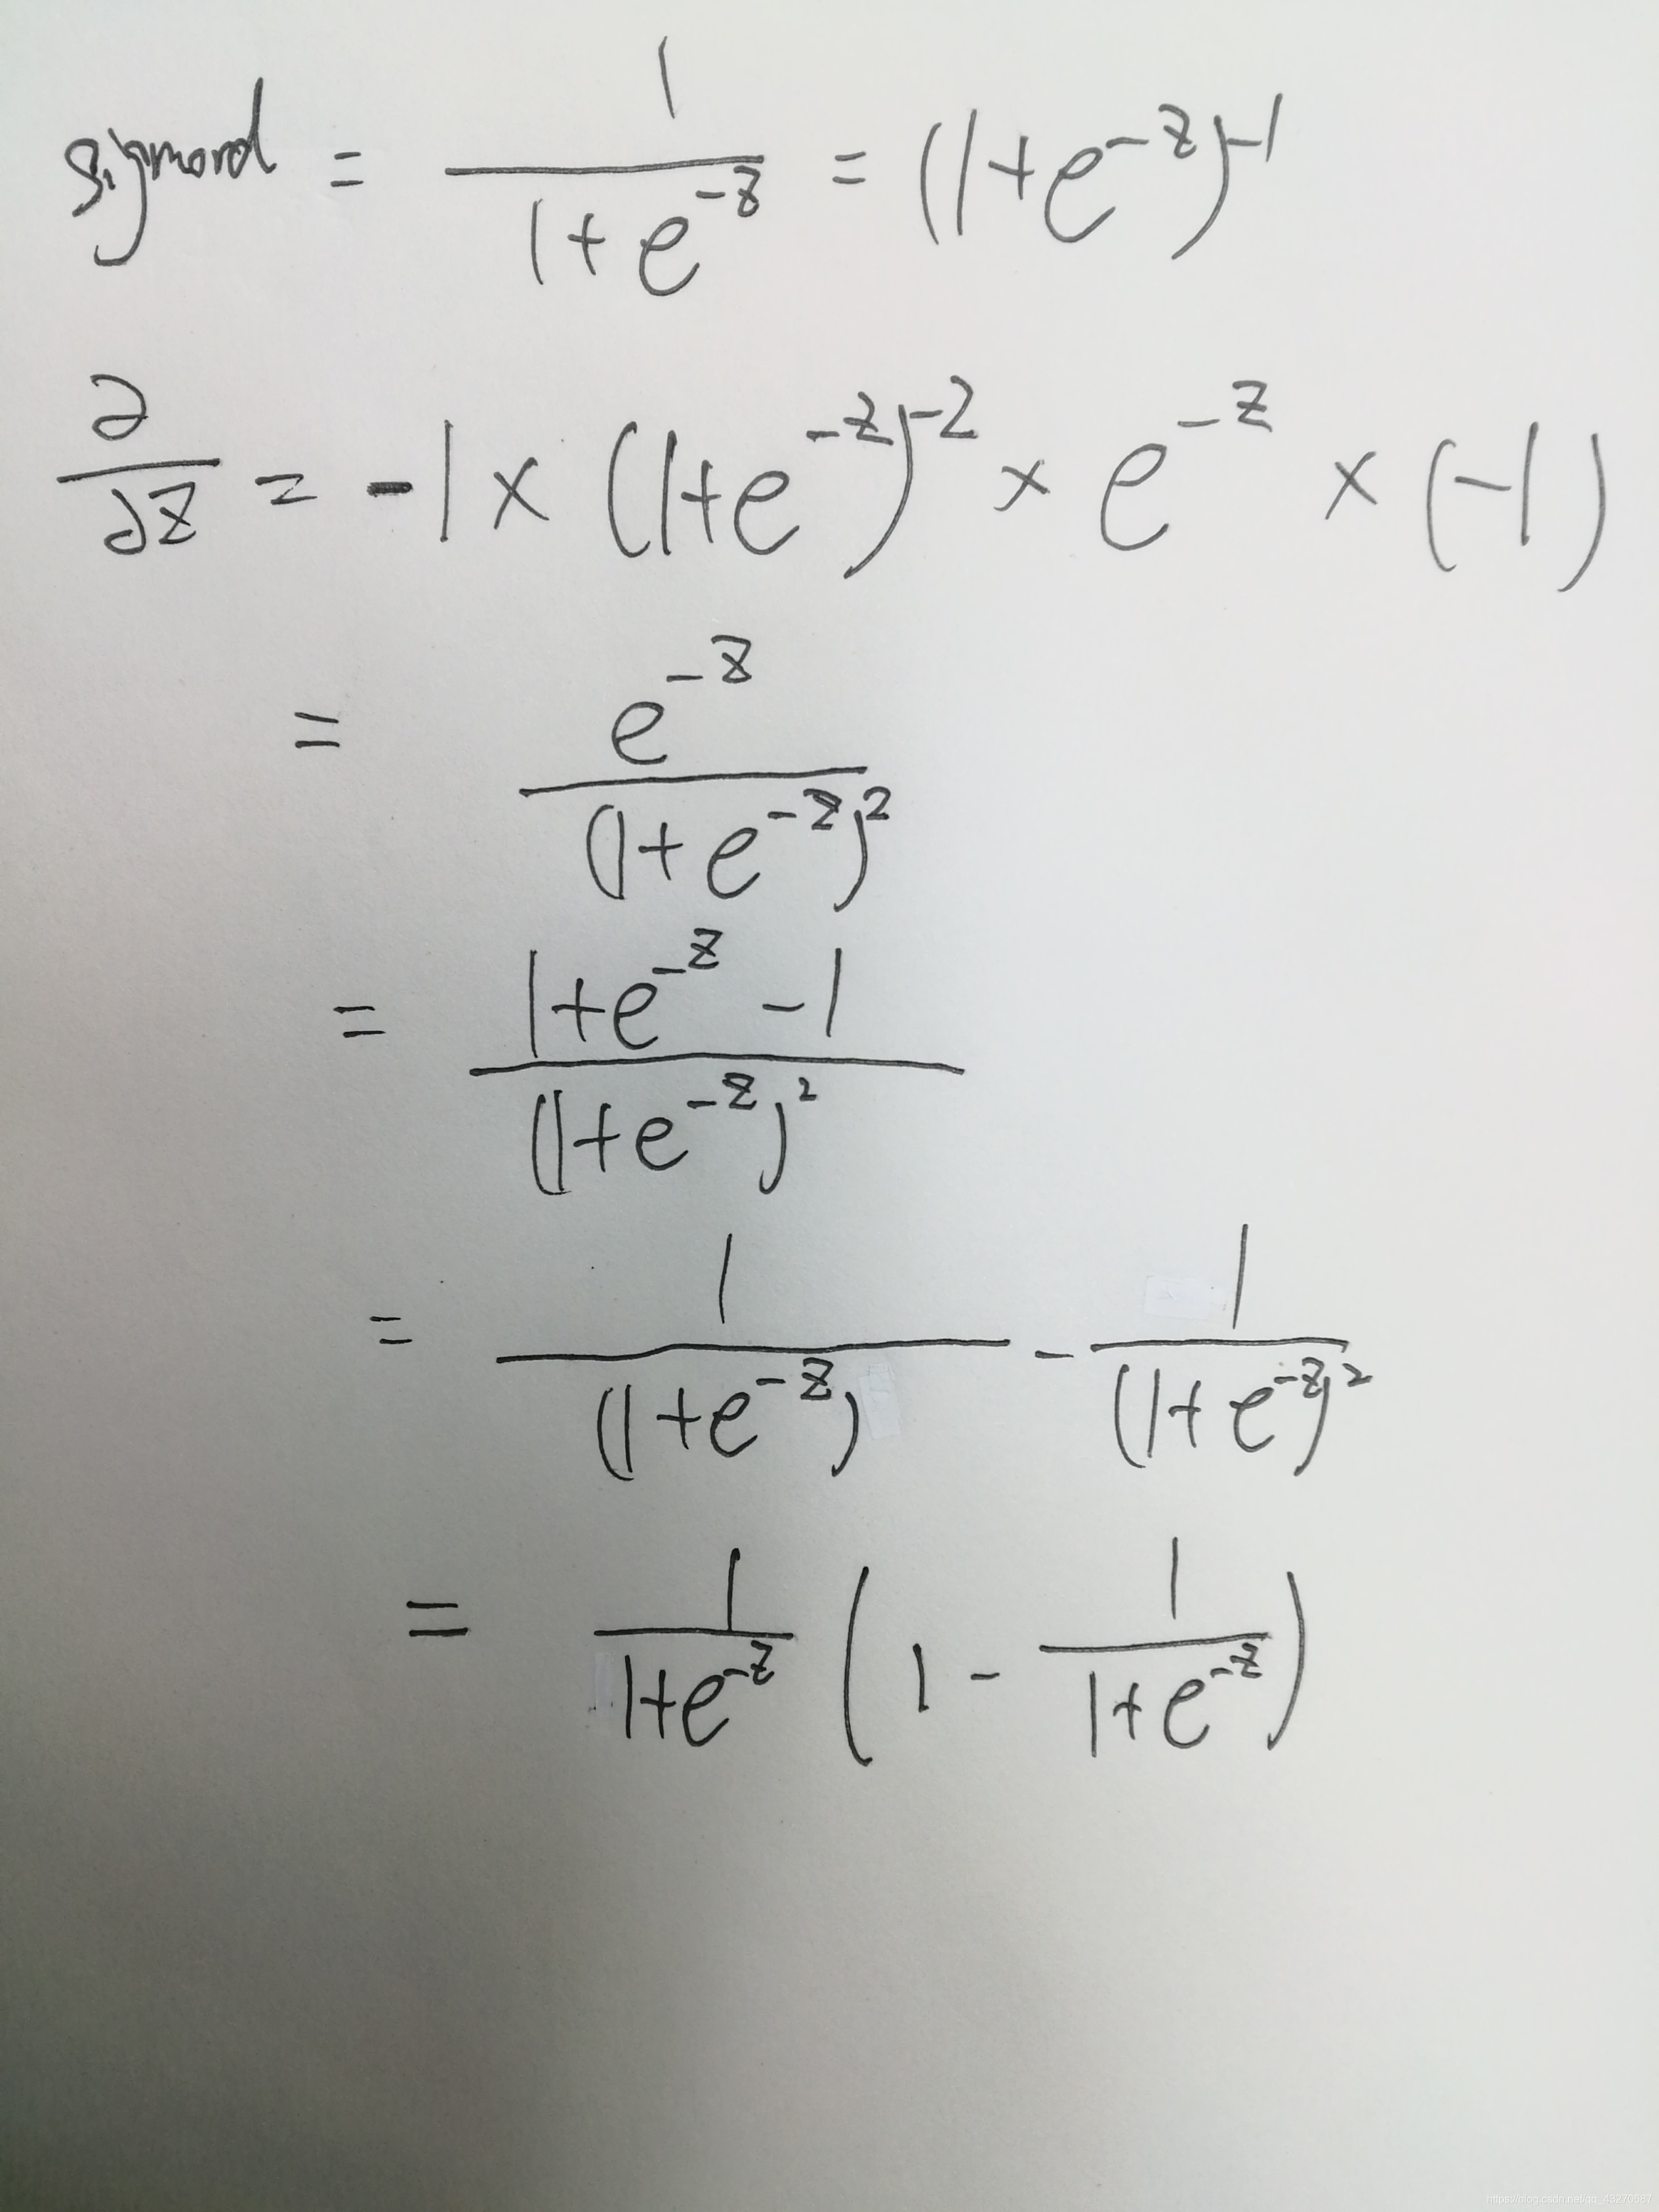 sigmoid = \frac{1}{1+e^{-z}} = (1+e^{-z})^{-1}
\frac{∂}{∂z} = -1 × (1+e^{-z})^{-2} × e^{-z} × (-1)
= \frac{e^{-z}}{(1+e^{-z})^2}
= \frac{1+e^{-z} -1}{(1+e^{-z})^2}
= \frac{1}{(1+e^{-z})} - \frac{1}{(1+e^{-z})^2}
= \frac{1}{1+e^{-z}} (1 - \frac{1}{1+e^{-z}})
https://blog.csdn.net/qq_43270687